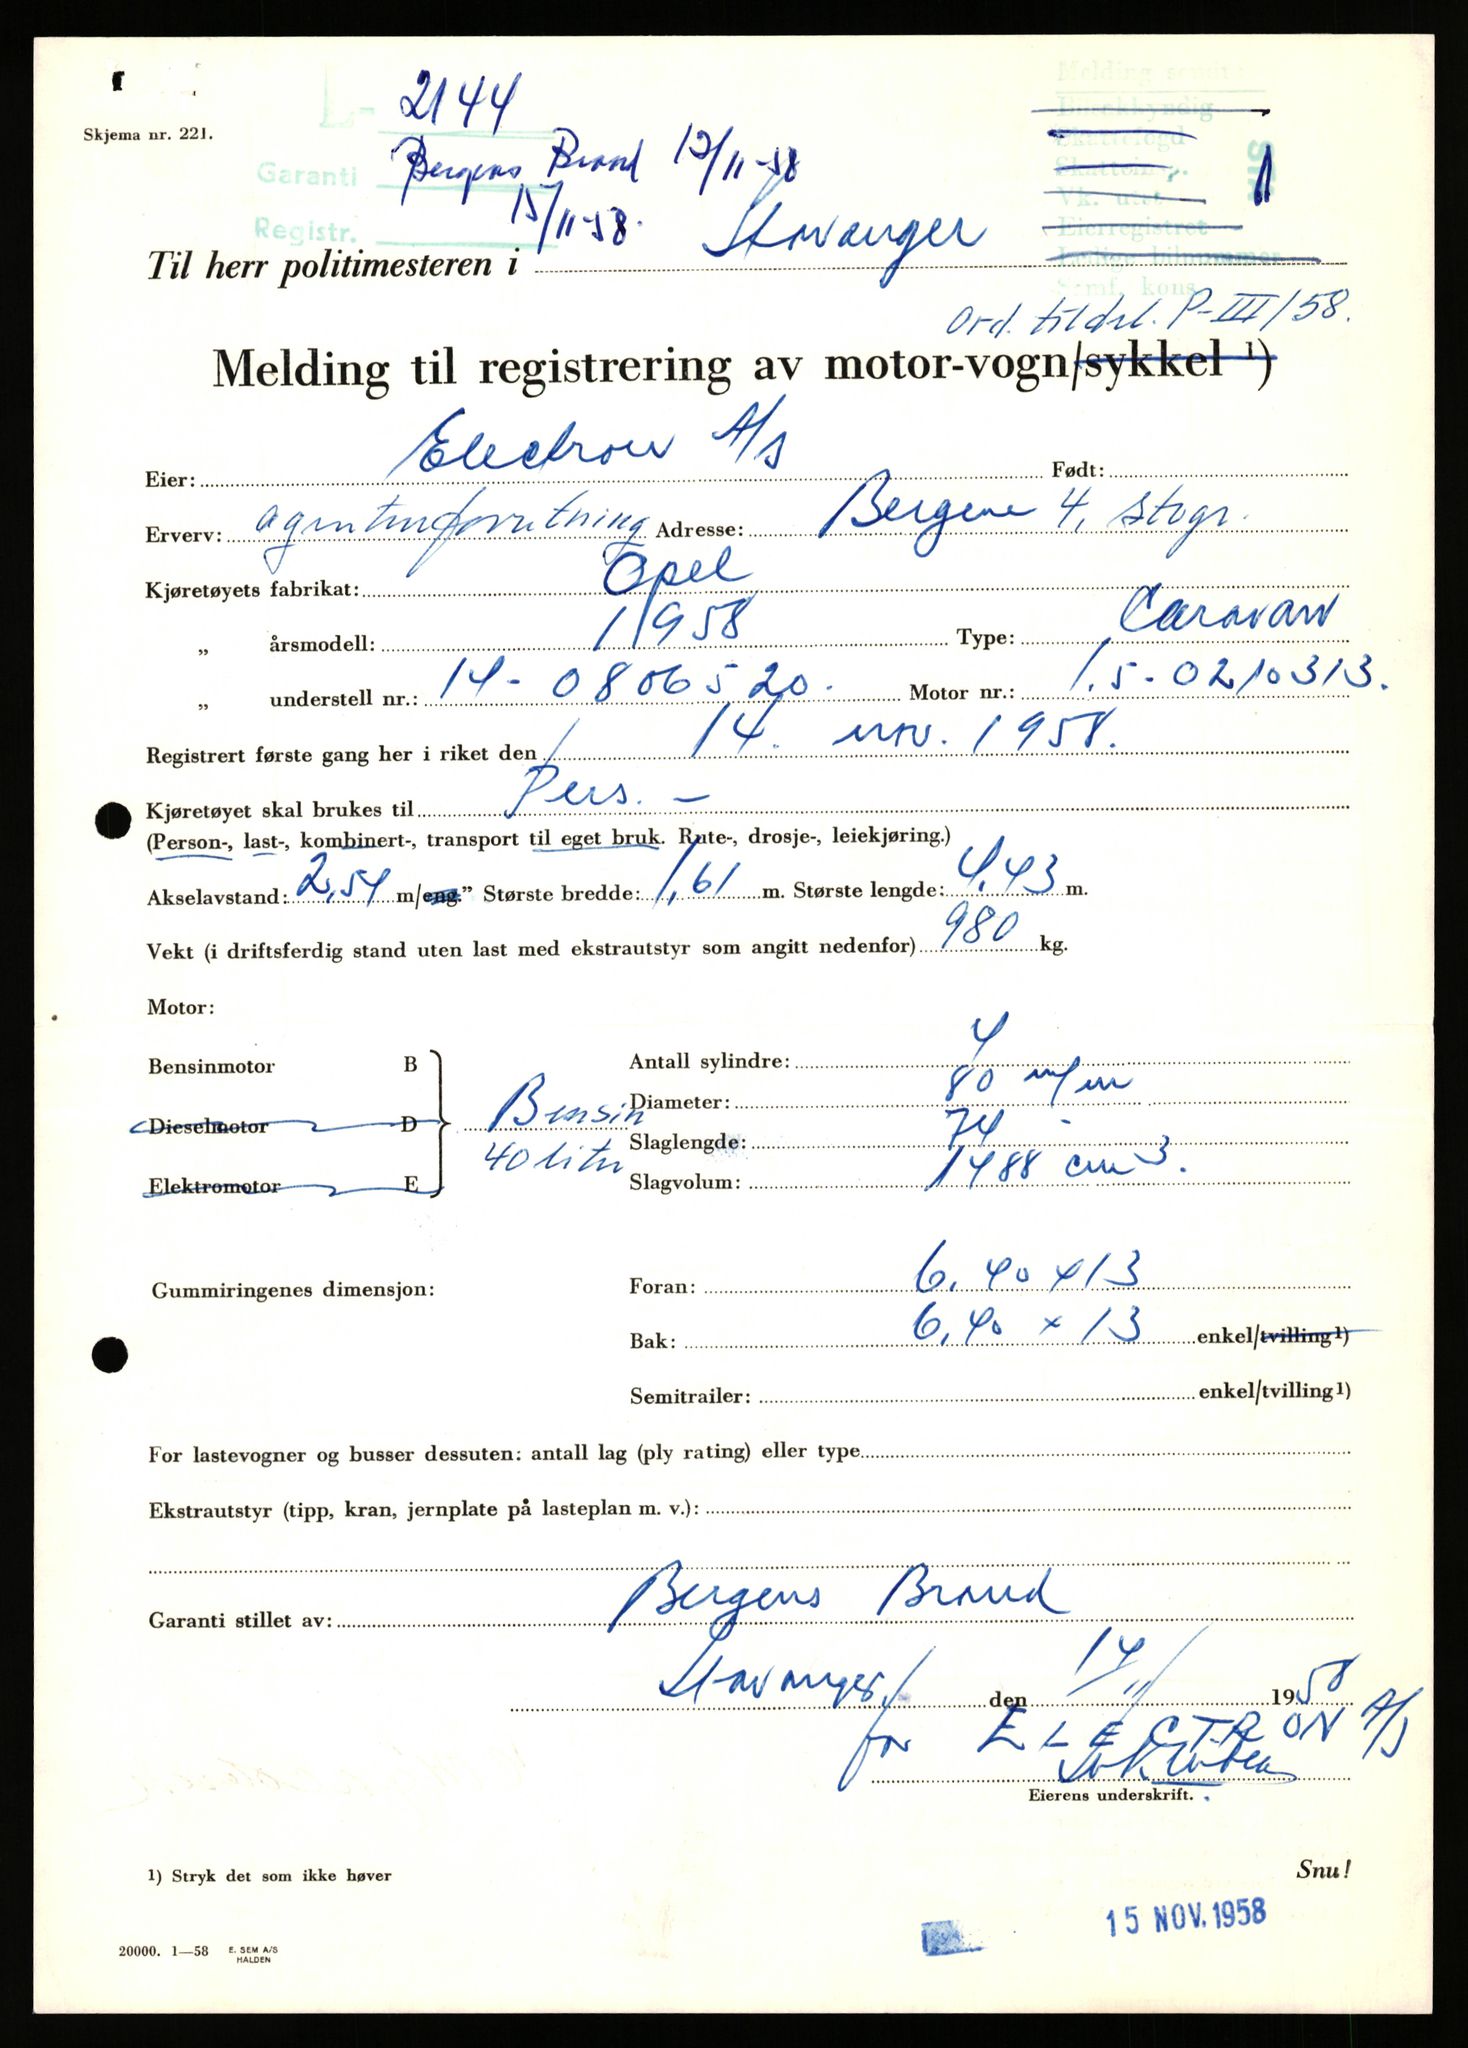 Skjema nr. 221.
L- 2144
Garanti Bergens Brand 12/11-58
Registr. 15/11-58.
Melding sendt:
Butekkyndig
Skattefogd
Vk. utst.
Eierregistret
Ledige bilnummer
Samf. kons.
Til herr politimesteren i Stavanger
Ord. tildel. P-III/58.
Melding til registrering av motor-vogn/sykkel ¹)
Eier: Electron A/S Født:
Erverv: agenturforretning Adresse: Bergene 4, Stvgr.
Kjøretøyets fabrikat: Opel
„ årsmodell: 1958 Type: Caravan
„ understell nr.: 14-0806520. Motor nr.: 1.5-0210313.
Registrert første gang her i riket den 14. nov. 1958.
Kjøretøyet skal brukes til Pers. –
(Person-, last-, kombinert-, transport til eget bruk. Rute-, drosje-, leiekjøring.)
Akselavstand: 2,54 m/eng.” Største bredde: 1,61 m. Største lengde: 4.43 m.
Vekt (i driftsferdig stand uten last med ekstrautstyr som angitt nedenfor) 980 kg.
Motor:
Bensinmotor B Antall sylindre: 4
Dieselmotor D Bensin Diameter: 80 m/m
40 liter Slaglengde: 74 -
Elektromotor E Slagvolum: 1488 cm3.
Gummiringenes dimensjon: Foran: 6.40 x 13
Bak: 6.40 x 13 enkel/tvilling¹)
Semitrailer: enkel/tvilling¹)
For lastevogner og busser dessuten: antall lag (ply rating) eller type
Ekstrautstyr (tipp, kran, jernplate på lasteplan m. v.):
Garanti stillet av: Bergens Brand
Stavanger, den 14/11 1958
for ELECTRON A/S
Eierens underskrift.
¹) Stryk det som ikke høver
Snu!
15 NOV. 1958
20000. 1—58 E. SEM A/S
HALDEN